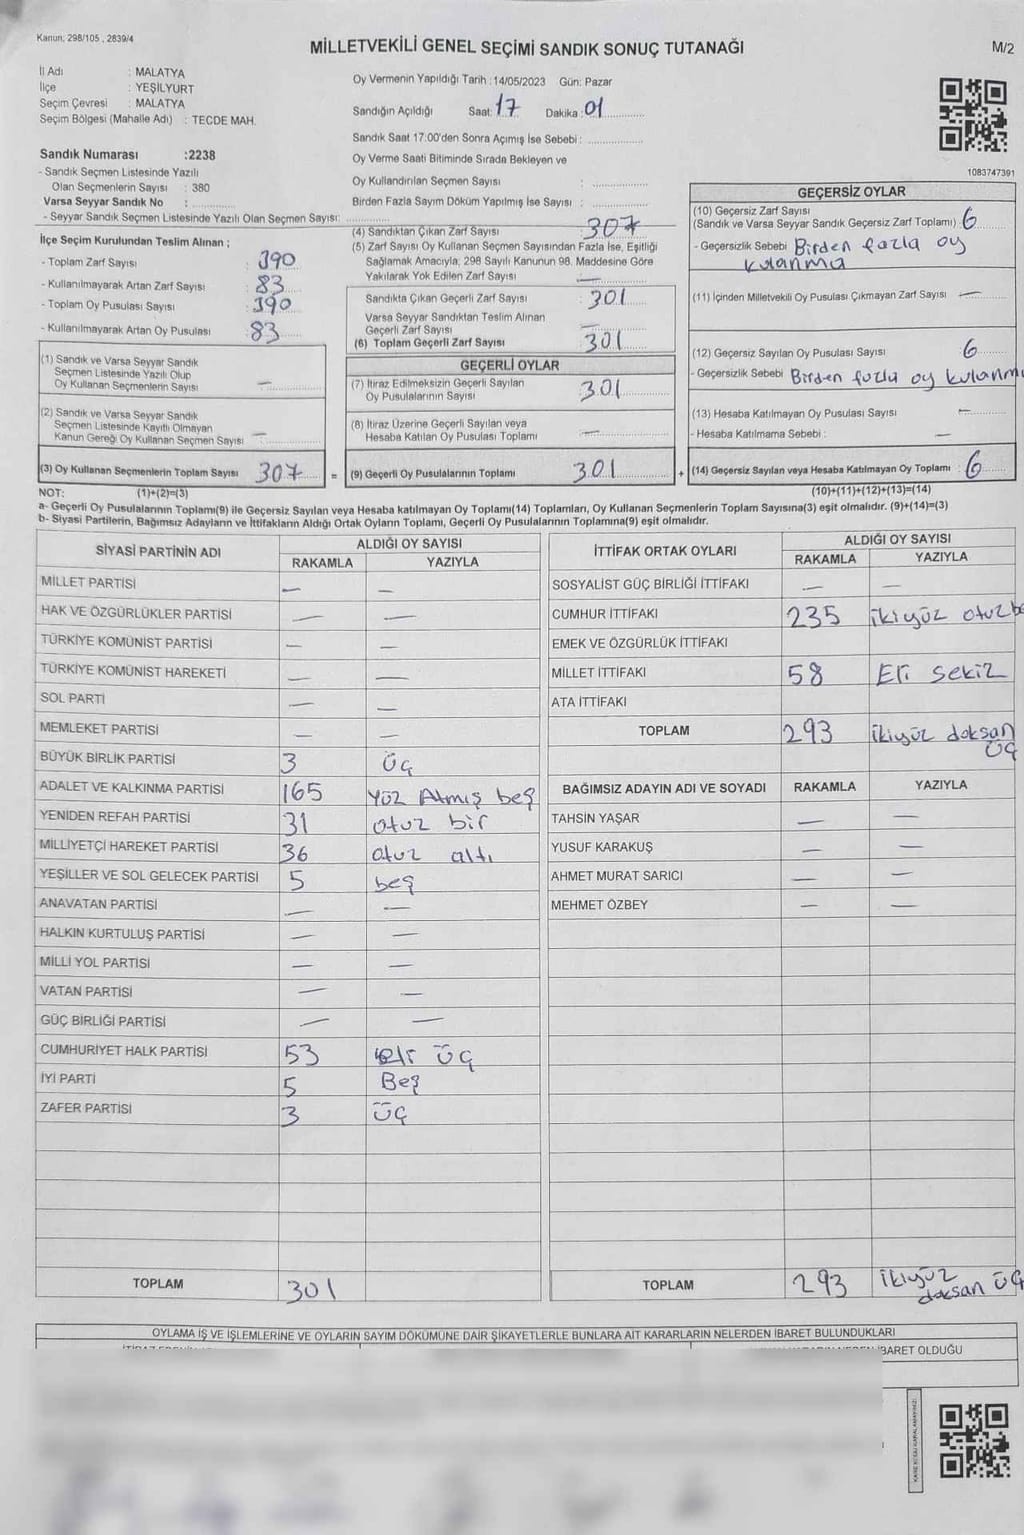 Kanun: 298/105 , 2839/4
MİLLETVEKİLİ GENEL SEÇİMİ SANDIK SONUÇ TUTANAĞI
M/2
İl Adı : MALATYA
İlçe : YEŞİLYURT
Seçim Çevresi : MALATYA
Seçim Bölgesi (Mahalle Adı) : TECDE MAH.
Sandık Numarası :2238
- Sandık Seçmen Listesinde Yazılı
Olan Seçmenlerin Sayısı : 380
Varsa Seyyar Sandık No :
- Seyyar Sandık Seçmen Listesinde Yazılı Olan Seçmen Sayısı:
Oy Vermenin Yapıldığı Tarih :14/05/2023 Gün: Pazar
Sandığın Açıldığı Saat: 17 Dakika : 01
Sandık Saat 17:00'den Sonra Açımış İse Sebebi :
Oy Verme Saati Bitiminde Sırada Bekleyen ve
Oy Kullandırılan Seçmen Sayısı :
Birden Fazla Sayım Döküm Yapılmış İse Sayısı :
1083747391
İlçe Seçim Kurulundan Teslim Alınan ;
- Toplam Zarf Sayısı : 390
- Kullanılmayarak Artan Zarf Sayısı : 83
- Toplam Oy Pusulası Sayısı : 390
- Kullanılmayarak Artan Oy Pusulası : 83
(1) Sandık ve Varsa Seyyar Sandık
Seçmen Listesinde Yazılı Olup
Oy Kullanan Seçmenlerin Sayısı : —
(2) Sandık ve Varsa Seyyar Sandık
Seçmen Listesinde Kayıtlı Olmayan
Kanun Gereği Oy Kullanan Seçmen Sayısı : —
(3) Oy Kullanan Seçmenlerin Toplam Sayısı 307
(4) Sandıktan Çıkan Zarf Sayısı : 307
(5) Zarf Sayısı Oy Kullanan Seçmen Sayısından Fazla İse, Eşitliği
Sağlamak Amacıyla; 298 Sayılı Kanunun 98. Maddesine Göre
Yakılarak Yok Edilen Zarf Sayısı : —
Sandıkta Çıkan Geçerli Zarf Sayısı : 301
Varsa Seyyar Sandıktan Teslim Alınan
Geçerli Zarf Sayısı : —
(6) Toplam Geçerli Zarf Sayısı : 301
GEÇERLİ OYLAR
(7) İtiraz Edilmeksizin Geçerli Sayılan
Oy Pusulalarının Sayısı : 301
(8) İtiraz Üzerine Geçerli Sayılan veya
Hesaba Katılan Oy Pusulası Toplamı : —
= (9) Geçerli Oy Pusulalarının Toplamı 301
GEÇERSİZ OYLAR
(10) Geçersiz Zarf Sayısı
(Sandık ve Varsa Seyyar Sandık Geçersiz Zarf Toplamı) : 6
- Geçersizlik Sebebi Birden fazla oy
kulanma
(11) İçinden Milletvekili Oy Pusulası Çıkmayan Zarf Sayısı : —
(12) Geçersiz Sayılan Oy Pusulası Sayısı : 6
- Geçersizlik Sebebi Birden fazla oy kulanm
(13) Hesaba Katılmayan Oy Pusulası Sayısı : —
- Hesaba Katılmama Sebebi : —
+ (14) Geçersiz Sayılan veya Hesaba Katılmayan Oy Toplamı : 6
NOT: (1)+(2)=(3) (10)+(11)+(12)+(13)=(14)
a- Geçerli Oy Pusulalarının Toplamı(9) ile Geçersiz Sayılan veya Hesaba katılmayan Oy Toplamı(14) Toplamları, Oy Kullanan Seçmenlerin Toplam Sayısına(3) eşit olmalıdır. (9)+(14)=(3)
b- Siyasi Partilerin, Bağımsız Adayların ve İttifakların Aldığı Ortak Oyların Toplamı, Geçerli Oy Pusulalarının Toplamına(9) eşit olmalıdır.
SİYASİ PARTİNİN ADI ALDIĞI OY SAYISI
RAKAMLA YAZIYLA
MİLLET PARTİSİ — —
HAK VE ÖZGÜRLÜKLER PARTİSİ — —
TÜRKİYE KOMÜNİST PARTİSİ — —
TÜRKİYE KOMÜNİST HAREKETİ — —
SOL PARTİ — —
MEMLEKET PARTİSİ — —
BÜYÜK BİRLİK PARTİSİ 3 üç
ADALET VE KALKINMA PARTİSİ 165 Yüz Atmış beş
YENİDEN REFAH PARTİSİ 31 otuz bir
MİLLİYETÇİ HAREKET PARTİSİ 36 otuz altı
YEŞİLLER VE SOL GELECEK PARTİSİ 5 beş
ANAVATAN PARTİSİ — —
HALKIN KURTULUŞ PARTİSİ — —
MİLLİ YOL PARTİSİ — —
VATAN PARTİSİ — —
GÜÇ BİRLİĞİ PARTİSİ — —
CUMHURİYET HALK PARTİSİ 53 elli üç
İYİ PARTİ 5 Beş
ZAFER PARTİSİ 3 üç
TOPLAM 301
İTTİFAK ORTAK OYLARI ALDIĞI OY SAYISI
RAKAMLA YAZIYLA
SOSYALİST GÜÇ BİRLİĞİ İTTİFAKI — —
CUMHUR İTTİFAKI 235 ikiyüz otuz be
EMEK VE ÖZGÜRLÜK İTTİFAKI
MİLLET İTTİFAKI 58 Eli sekiz
ATA İTTİFAKI
TOPLAM 293 ikiyüz doksan
üç
BAĞIMSIZ ADAYIN ADI VE SOYADI RAKAMLA YAZIYLA
TAHSİN YAŞAR — —
YUSUF KARAKUŞ — —
AHMET MURAT SARICI — —
MEHMET ÖZBEY — —
TOPLAM 293 ikiyüz
doksan üç
OYLAMA İŞ VE İŞLEMLERİNE VE OYLARIN SAYIM DÖKÜMÜNE DAİR ŞİKAYETLERLE BUNLARA AİT KARARLARIN NELERDEN İBARET BULUNDUKLARI
İBARET OLDUĞU